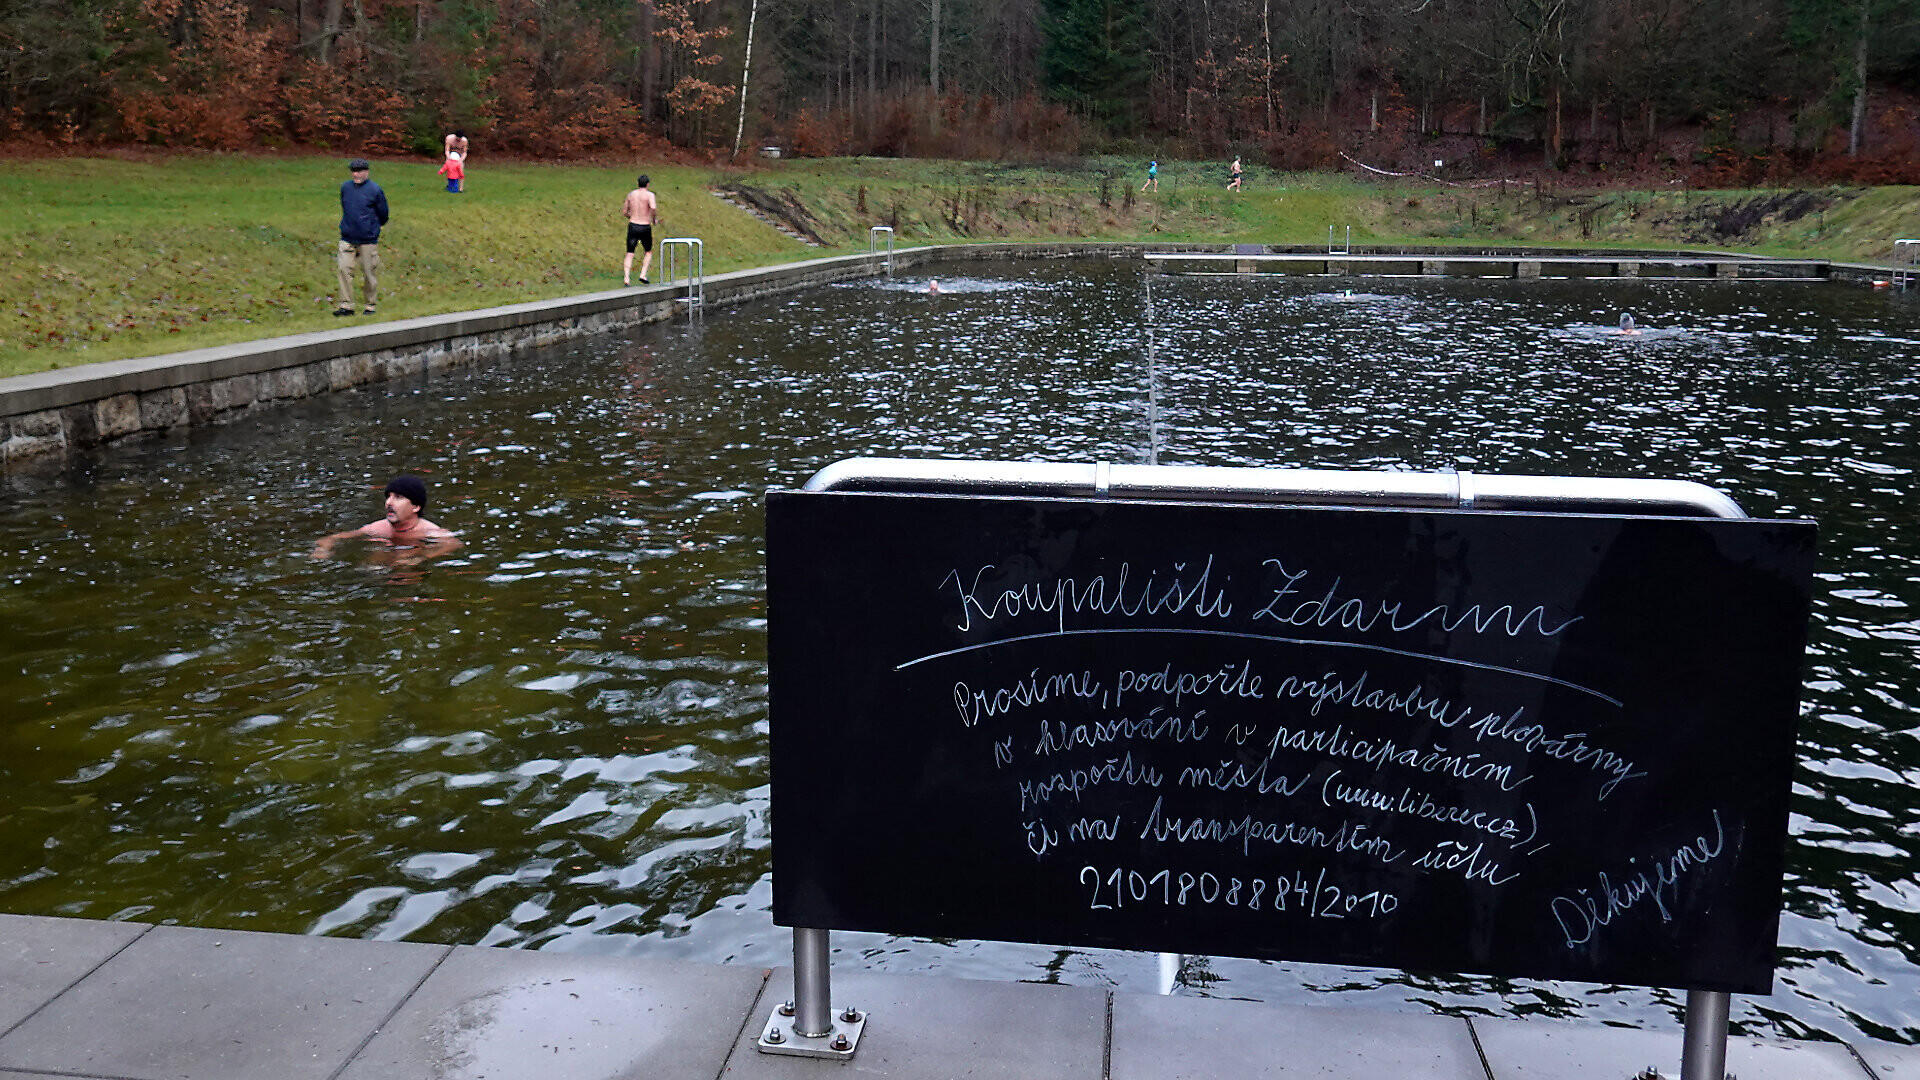 Koupališti Zdarm
Prosíme, podpořte výstavbu plovárny
v hlasování v participačním
rozpočtu města (www.liberec.cz),
či na transparentím účtu
2101808884/2010
Děkujeme